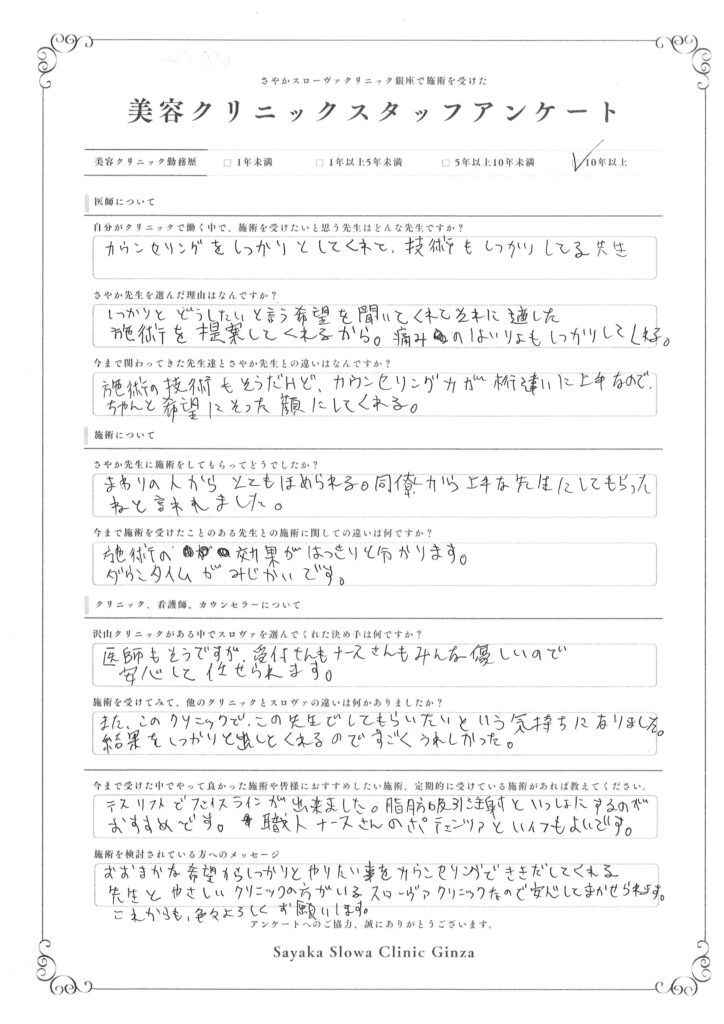 さやかスローヴァクリニック銀座で施術を受けた
美容クリニックスタッフアンケート
美容クリニック勤務歴 □ 1年未満 □ 1年以上5年未満 □ 5年以上10年未満 ✓ 10年以上
医師について
自分がクリニックで働く中で、施術を受けたいと思う先生はどんな先生ですか?
カウンセリングをしっかりとしてくれて、技術もしっかりしてる先生
さやか先生を選んだ理由はなんですか?
しっかりと どうしたいと言う希望を聞いてくれてそれに適した
施術を提案してくれるから。痛みのはいりょもしっかりしてくれる。
今まで関わってきた先生達とさやか先生との違いはなんですか?
施術の技術もそうだけど、カウンセリング力が桁違いに上手なので、
ちゃんと希望にそった顔にしてくれる。
施術について
さやか先生に施術をしてもらってどうでしたか?
まわりの人からとてもほめられる。同僚から上手な先生にしてもらった
ねと言われました。
今まで施術を受けたことのある先生との施術に関しての違いは何ですか?
施術の 効果がはっきりと分かります。
ダウンタイムがみじかいです。
クリニック、看護師、カウンセラーについて
沢山クリニックがある中でスロヴァを選んでくれた決め手は何ですか?
医師もそうですが、受付さんもナースさんもみんな優しいので
安心して任せられます。
施術を受けてみて、他のクリニックとスロヴァの違いは何かありましたか?
また、このクリニックで、この先生でしてもらいたいという気持ちになりました。
結果をしっかりと出してくれるのですごくうれしかった。
今まで受けた中でやって良かった施術や皆様におすすめしたい施術、定期的に受けている施術があれば教えてください。
テスリフトでフェイスラインが出来ました。脂肪吸引注射といっしょにするのが
おすすめです。職人ナースさんのポテンツァとハイフもよいです。
施術を検討されている方へのメッセージ
おおまかな希望からしっかりとやりたい事をカウンセリングでききだしてくれる
先生とやさしいクリニックの方がいるスローヴァクリニックなので安心してまかせられます。
これからも、色々よろしくお願いします。
アンケートへのご協力、誠にありがとうございます。
Sayaka Slowa Clinic Ginza